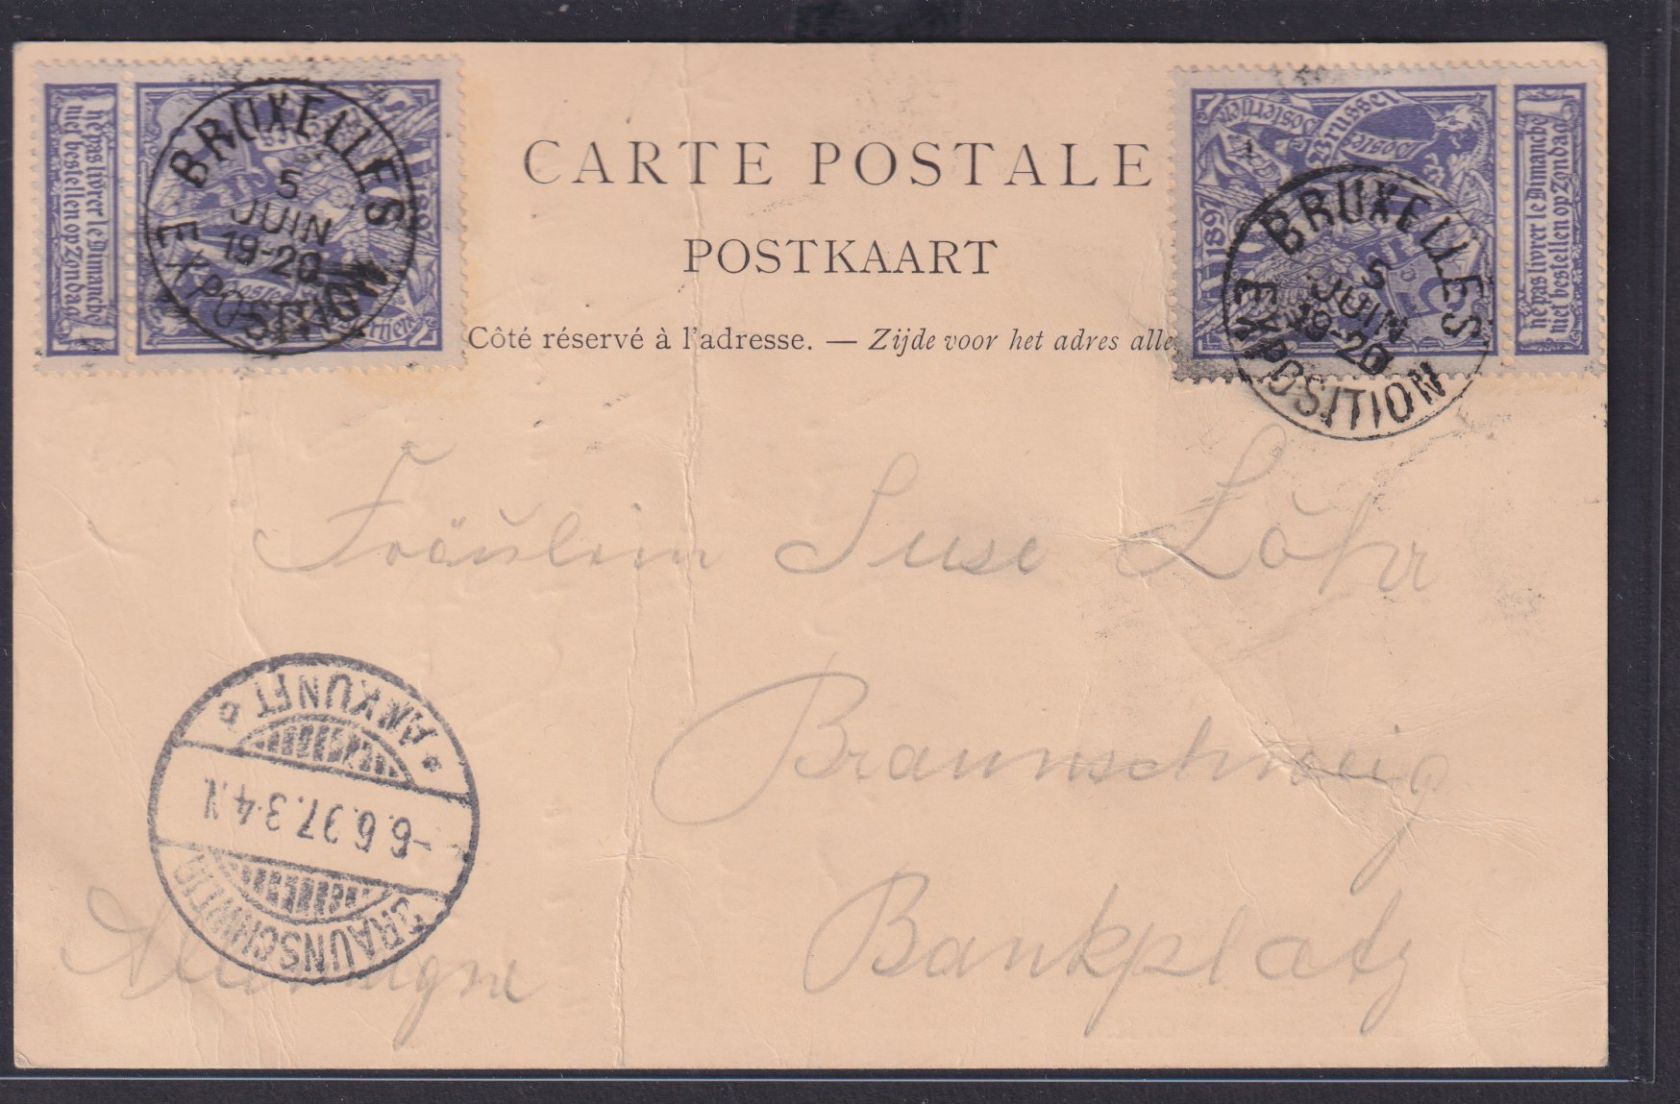 CARTE POSTALE
POSTKAART
Côté réservé à l'adresse. — Zijde voor het adres alle
Ne pas livrer le Dimanche
niet bestellen op Zondag
BRUXELLES
5
JUIN
19-20
EXPOSITION
1897
Brussel
Ne pas livrer le Dimanche
niet bestellen op Zondag
BRUXELLES
5
JUIN
19-20
EXPOSITION
Fräulein Suse Löhr
Braunschweig
Bankplatz
Allemagne
BRAUNSCHWEIG
-6.6.97.3-4.N.
* ANKUNFT b